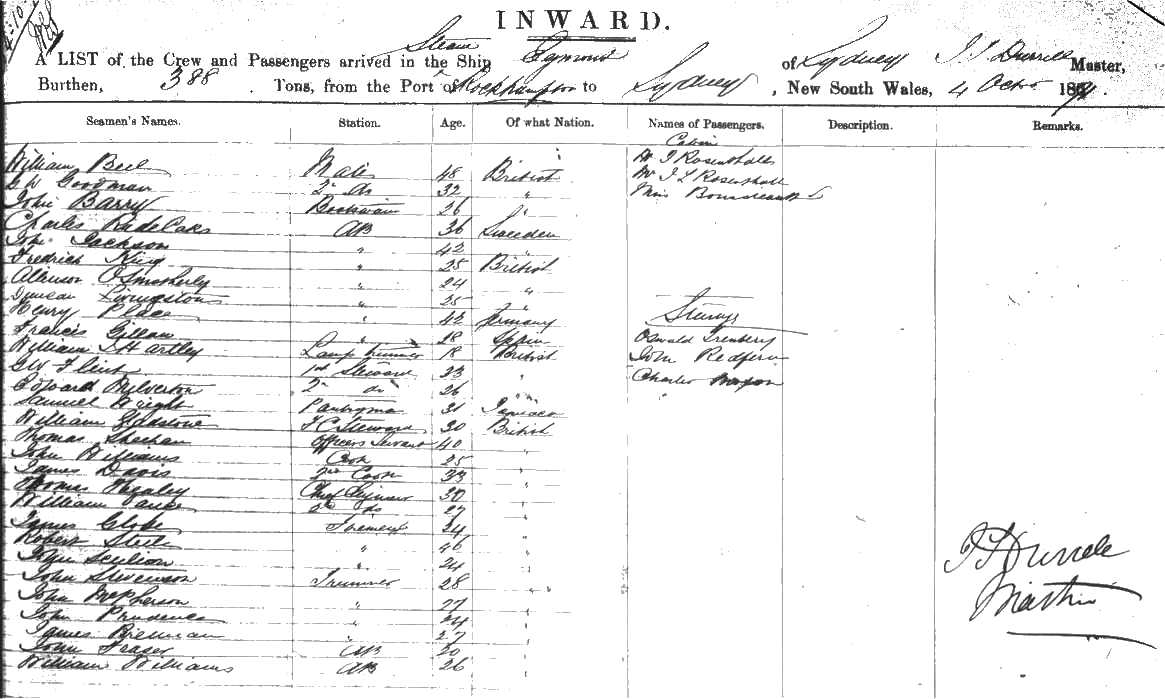 INWARD.
A LIST of the Crew and Passengers arrived in the Ship Steam Egmont of Sydney Master,
Burthen, 388 Tons, from the Port of Rockhampton to Sydney, New South Wales, 4 Octr 18
Seamen's Names. Station. Age. Of what Nation. Names of Passengers. Description. Remarks.
Cabin
William Bell Mate 48 British
G W Goodman 2nd do 32 "
John Barry Boatswain 26 "
Charles AB 36 Sweden
John Jackson " 42 "
Fredrick King " 25 British
O Smotherly " 24 "
Duncan Livingstone " 25 "
Henry Place " 42 Germany
Francis " 28 Spain Oswald
William Hartley Lamp trimmer 18 British John Redfern
G W Flint 1st Steward 23 " Charles
Edward Milverton 2nd do 26 "
Samuel Wright Pantryman 31 Jamaica
William Gladstone F C Steward 30 British
Thomas Sheehan Officers Servant 40 "
John Williams Cook 25 "
James Davis 2nd Cook 33 "
Thomas Chief Engineer 30 "
William 2nd do 27 "
James Globe Firemen 24 "
Robert Steele " 46 "
" 24
John Stevenson Trimmer 28 "
John McPherson " 27
John Prudence " 24
James Brennan " 27
John Fraser AB 20
William Williams AB 26
Master